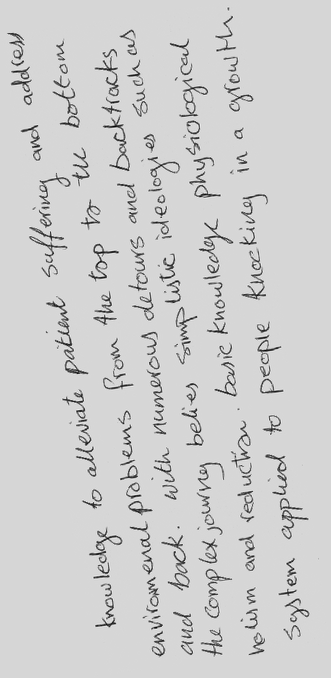 knowledge to alleviate patient suffering and address
environmenal problems from the top to the bottom
and back. with numerous detours and backtracks
the complex journey belies simplistic ideologies such as
holism and reduction. basic knowledge physiological
system applied to people knocking in a growth.